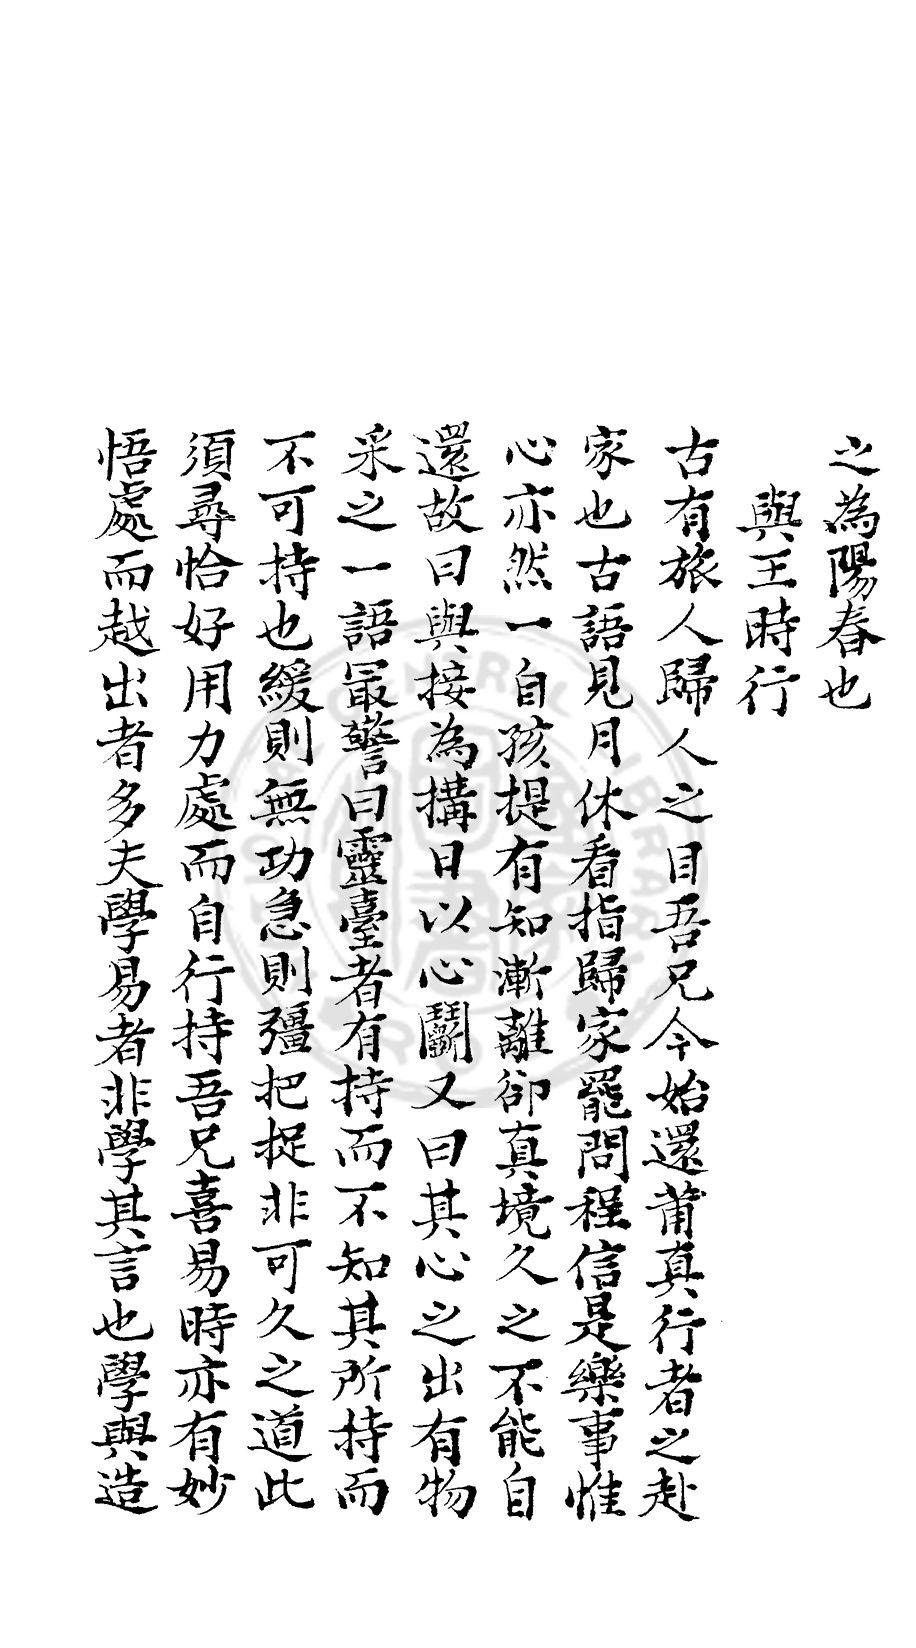 之為陽春也
與王時行
古有旅人歸人之目吾兄今始還莆真行者之赴
家也古語見月休看指歸家罷問程信是樂事惟
心亦然一自孩提有知漸離卻真境久之不能自
還故曰與接為搆日以心鬭又曰其心之出有物
采之一語最警曰靈臺者有持而不知其所持而
不可持也緩則無功急則彊把捉非可久之道此
須尋恰好用力處而自行持吾兄喜易時亦有妙
悟處而越出者多夫學易者非學其言也學與造